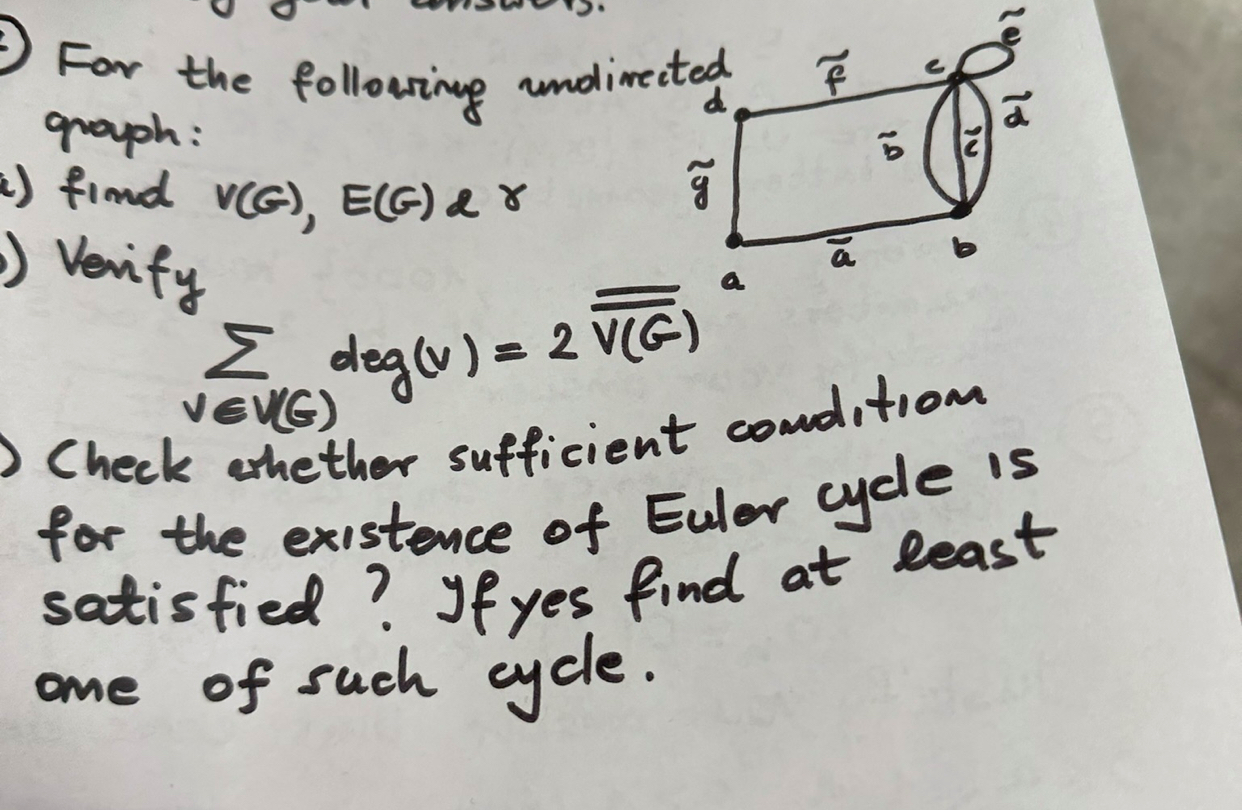 your answers.
For the following undirected
graph:
a) find V(G), E(G) & γ
b) Verify
∑ deg(v) = 2 V̿(̿G̿)̿
v∈V(G)
) Check whether sufficient condition
for the existence of Euler cycle is
satisfied? If yes find at least
one of such cycle.
d
f̃
c
ẽ
g̃
b̃
c̃
d̃
a
ã
b